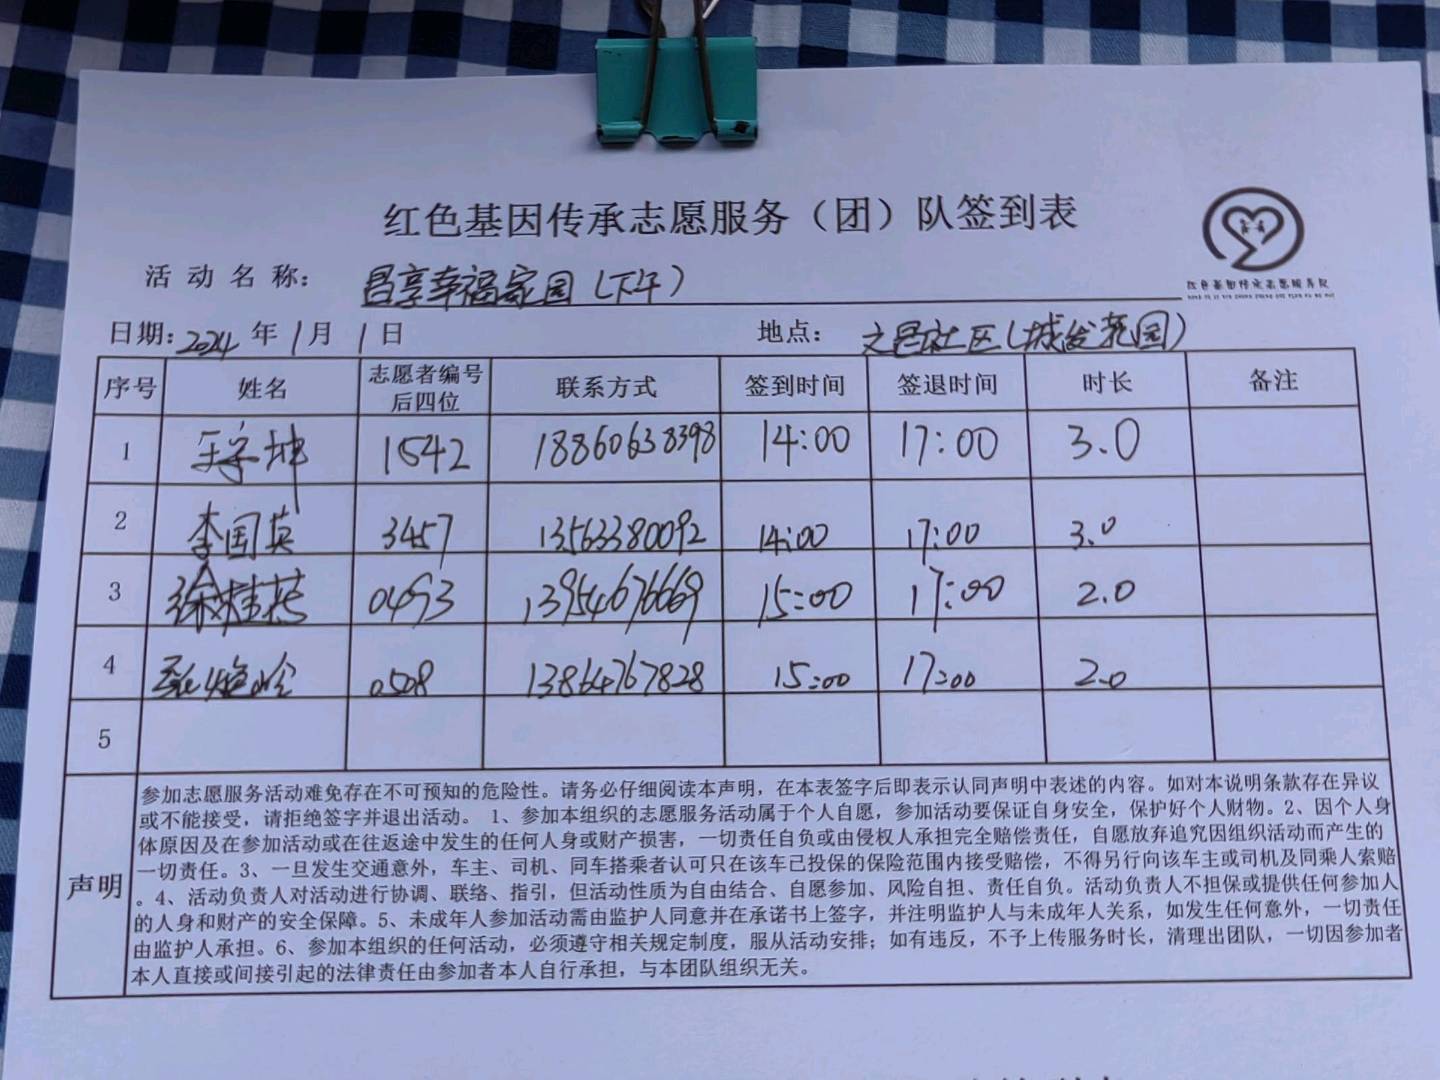 红色基因传承志愿服务（团）队签到表
红色基因传承志愿服务队
活动名称：昌享幸福家园（下午）
日期：2024年1月1日 地点：文昌社区（城发花园）
序号 姓名 志愿者编号后四位 联系方式 签到时间 签退时间 时长 备注
1 王学坤 1542 18860638398 14:00 17:00 3.0
2 李国英 3457 13563380092 14:00 17:00 3.0
3 徐桂英 0493 13954676669 15:00 17:00 2.0
4 0508 13864767828 15:00 17:00 2.0
5
声明
参加志愿服务活动难免存在不可预知的危险性。请务必仔细阅读本声明，在本表签字后即表示认同声明中表述的内容。如对本说明条款存在异议
或不能接受，请拒绝签字并退出活动。 1、参加本组织的志愿服务活动属于个人自愿，参加活动要保证自身安全，保护好个人财物。2、因个人身
体原因及在参加活动或在往返途中发生的任何人身或财产损害，一切责任自负或由侵权人承担完全赔偿责任，自愿放弃追究因组织活动而产生的
一切责任。3、一旦发生交通意外，车主、司机、同车搭乘者认可只在该车已投保的保险范围内接受赔偿，不得另行向该车主或司机及同乘人索赔
。4、活动负责人对活动进行协调、联络、指引，但活动性质为自由结合、自愿参加、风险自担、责任自负。活动负责人不担保或提供任何参加人
的人身和财产的安全保障。5、未成年人参加活动需由监护人同意并在承诺书上签字，并注明监护人与未成年人关系，如发生任何意外，一切责任
由监护人承担。6、参加本组织的任何活动，必须遵守相关规定制度，服从活动安排；如有违反，不予上传服务时长，清理出团队，一切因参加者
本人直接或间接引起的法律责任由参加者本人自行承担，与本团队组织无关。